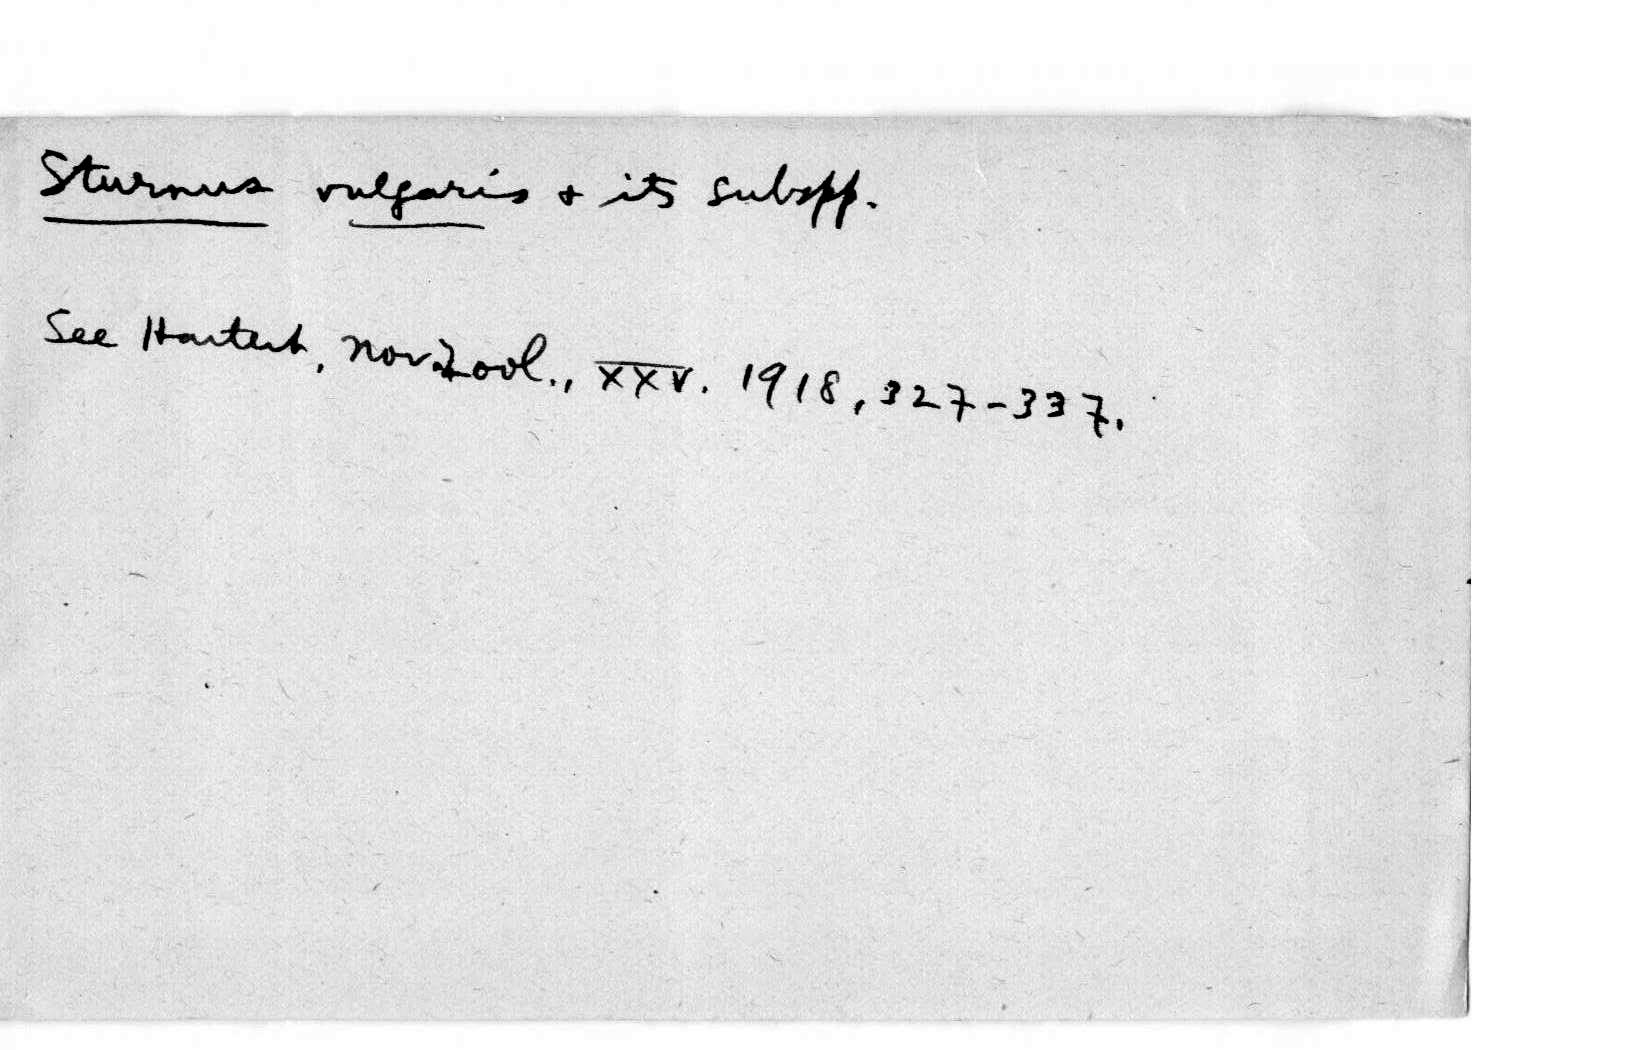 Sturnus vulgaris & its subspp.
See Hartert, Nov. Zool., XXV. 1918, 327-337.